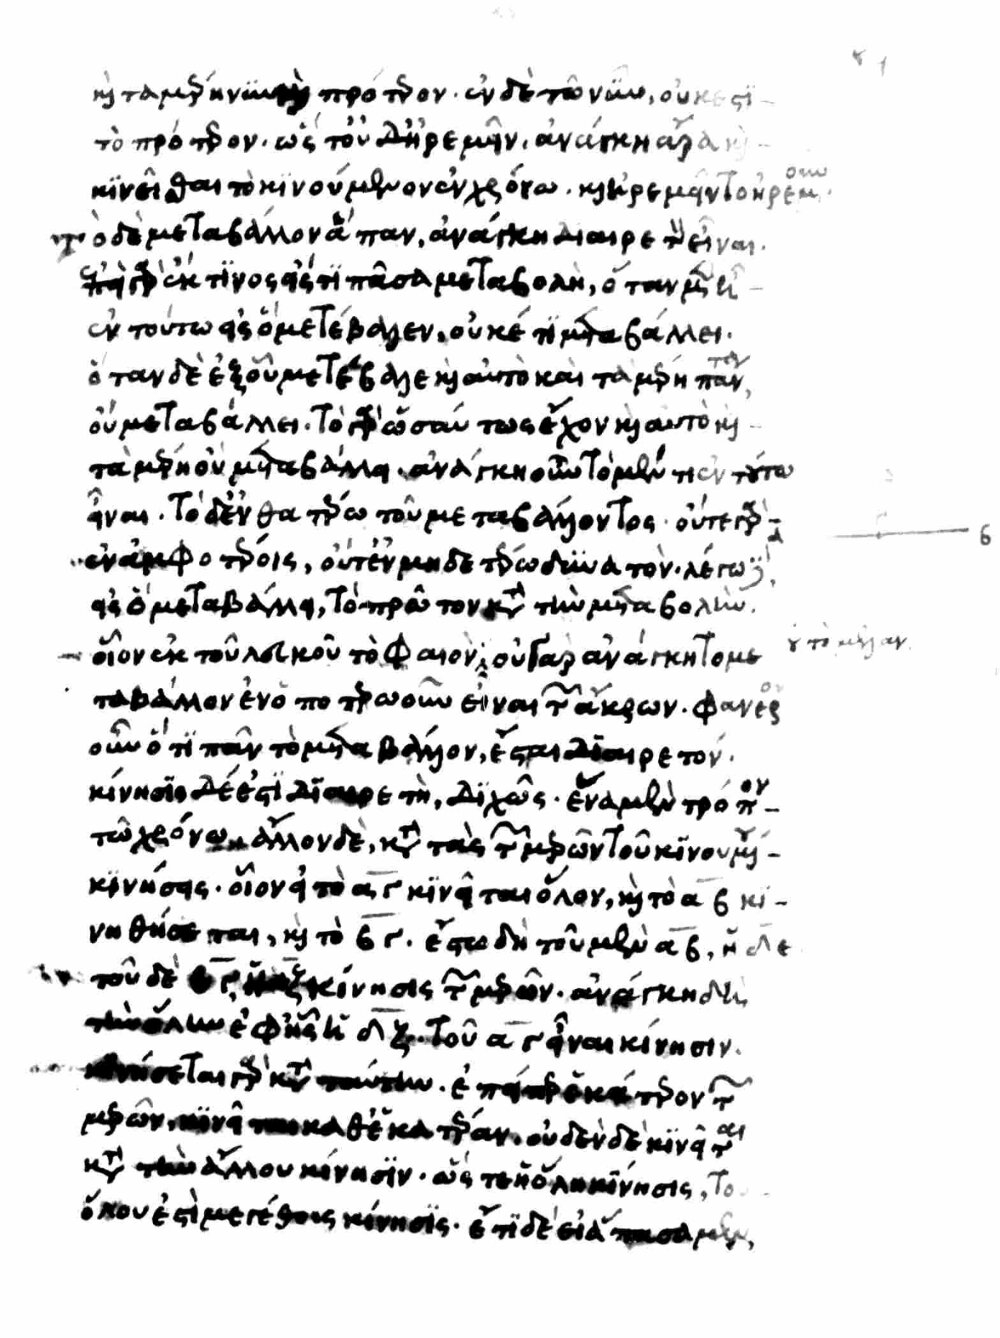 καὶ τὰ μέρη νῦν καὶ πρότερον. ἐν δὲ τῶ νῦν, οὐκ ἔστι
τὸ πρότερον. ὥστ' οὐδ' ἠρεμεῖν. ἀνάγκη ἄρα καὶ
κινεῖσθαι τὸ κινούμενον ἐν χρόνω. καὶ ἠρεμεῖν τὸ ἠρεμοῦν.
τὸ δὲ μεταβάλλον ἅπαν, ἀνάγκη διαιρετὸν εἶναι.
ἐπεὶ γὰρ ἔκ τινος εἴς τι πᾶσα μεταβολὴ, ὅταν μὲν ᾖ
ἐν τούτω εἰς ὃ μετέβαλεν, οὐκέτι μεταβάλλει.
ὅταν δὲ ἐξ οὗ μετέβαλε καὶ αὐτὸ καὶ τὰ μέρη πάντα,
οὐ μεταβάλλει. τὸ γὰρ ὡσαύτως ἔχον καὶ αὐτὸ καὶ
τὰ μέρη οὐ μεταβάλλει. ἀνάγκη οὖν τὸ μέν τι ἐν τούτω
εἶναι. τὸ δ' ἐν θατέρω τοῦ μεταβάλλοντος. οὔτε γὰρ
ἐν ἀμφοτέροις, οὔτ' ἐν μηδετέρω δυνατόν. λέγω δ'
εἰς ὃ μεταβάλλει, τὸ πρῶτον κατὰ τὴν μεταβολήν.
οἷον ἐκ τοῦ λευκοῦ τὸ φαιὸν, οὐ γὰρ ἀνάγκη τὸ με
οὐ τὸ μέλαν
ταβάλλον ἐν ὁποτερωοῦν εἶναι τῶν ἄκρων. φανερὸν
οὖν ὅτι πᾶν τὸ μεταβάλλον, ἔσται διαιρετόν.
κίνησις δέ ἐστι διαιρετὴ, διχῶς. ἕνα μὲν τρόπον
τῶ χρόνω. ἄλλον δὲ, κατὰ τὰς τῶν μερῶν τοῦ κινουμένου
κινήσεις. οἷον εἰ τὸ α γ κινεῖται ὅλον, καὶ τὸ α β κι
νηθήσεται, καὶ τὸ β γ. ἔστω δὴ τοῦ μὲν α β, ἡ δ ε
τοῦ δὲ β γ, ἡ ε ζ κίνησις τῶν μερῶν. ἀνάγκη δὴ
τὴν ὅλην ἐφ' ἧς ἡ δ ζ. τοῦ α γ εἶναι κίνησιν.
κινήσεται γὰρ κατὰ ταύτην. ἐπείπερ ἑκάτερον τῶν
μερῶν, κινεῖται καθ' ἑκατέραν. οὐδὲν δὲ κινεῖται
κατὰ τὴν ἄλλου κίνησιν. ὥστε ἡ ὅλη κίνησις, τοῦ
ὅλου ἐστὶ μεγέθους κίνησις. ἔτι δὲ εἰ ἅπασα μὲν